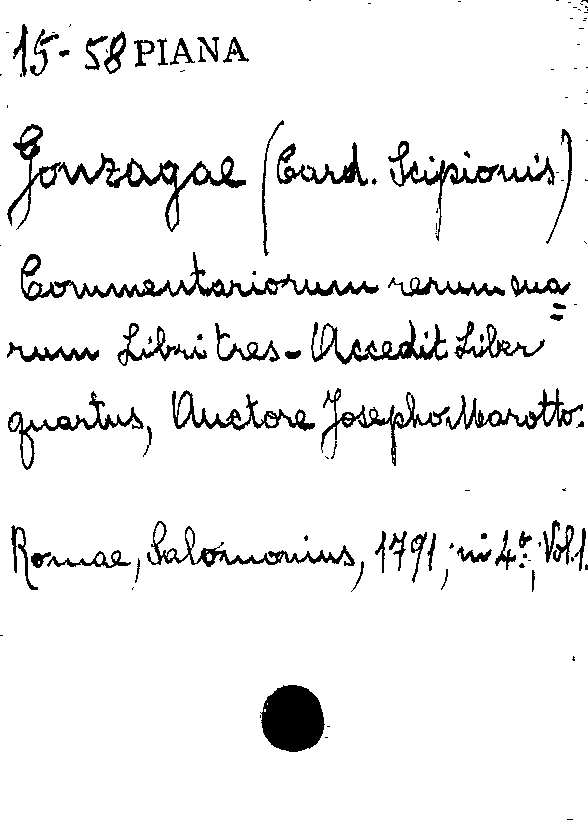 15-58 PIANA
Gonzagae (Card. Scipionis)
Commentariorum rerum sua=
rum Libri tres - Accedit Liber
quartus, Auctore Josepho Marotto.
Romae, Salomonius, 1791; in 4º; Vol. 1.